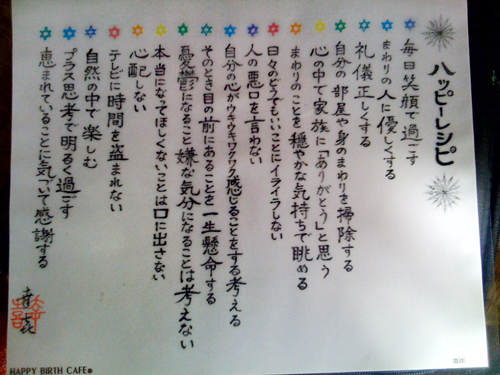 ハッピーレシピ
毎日笑顔で過ごす
まわりの人に優しくする
礼儀正しくする
自分の部屋や身のまわりを掃除する
心の中で家族に「ありがとう」と思う
まわりのことを穏やかな気持ちで眺める
日々のどうでもいいことにイライラしない
人の悪口を言わない
自分の心がウキウキワクワク感じることをする考える
そのとき目の前にあることを一生懸命する
憂鬱になること嫌な気分になることは考えない
本当になってほしくないことは口に出さない
心配しない
テレビに時間を盗まれない
自然の中で楽しむ
プラス思考で明るく過ごす
恵まれていることに気づいて感謝する
HAPPY BIRTH CAFE®